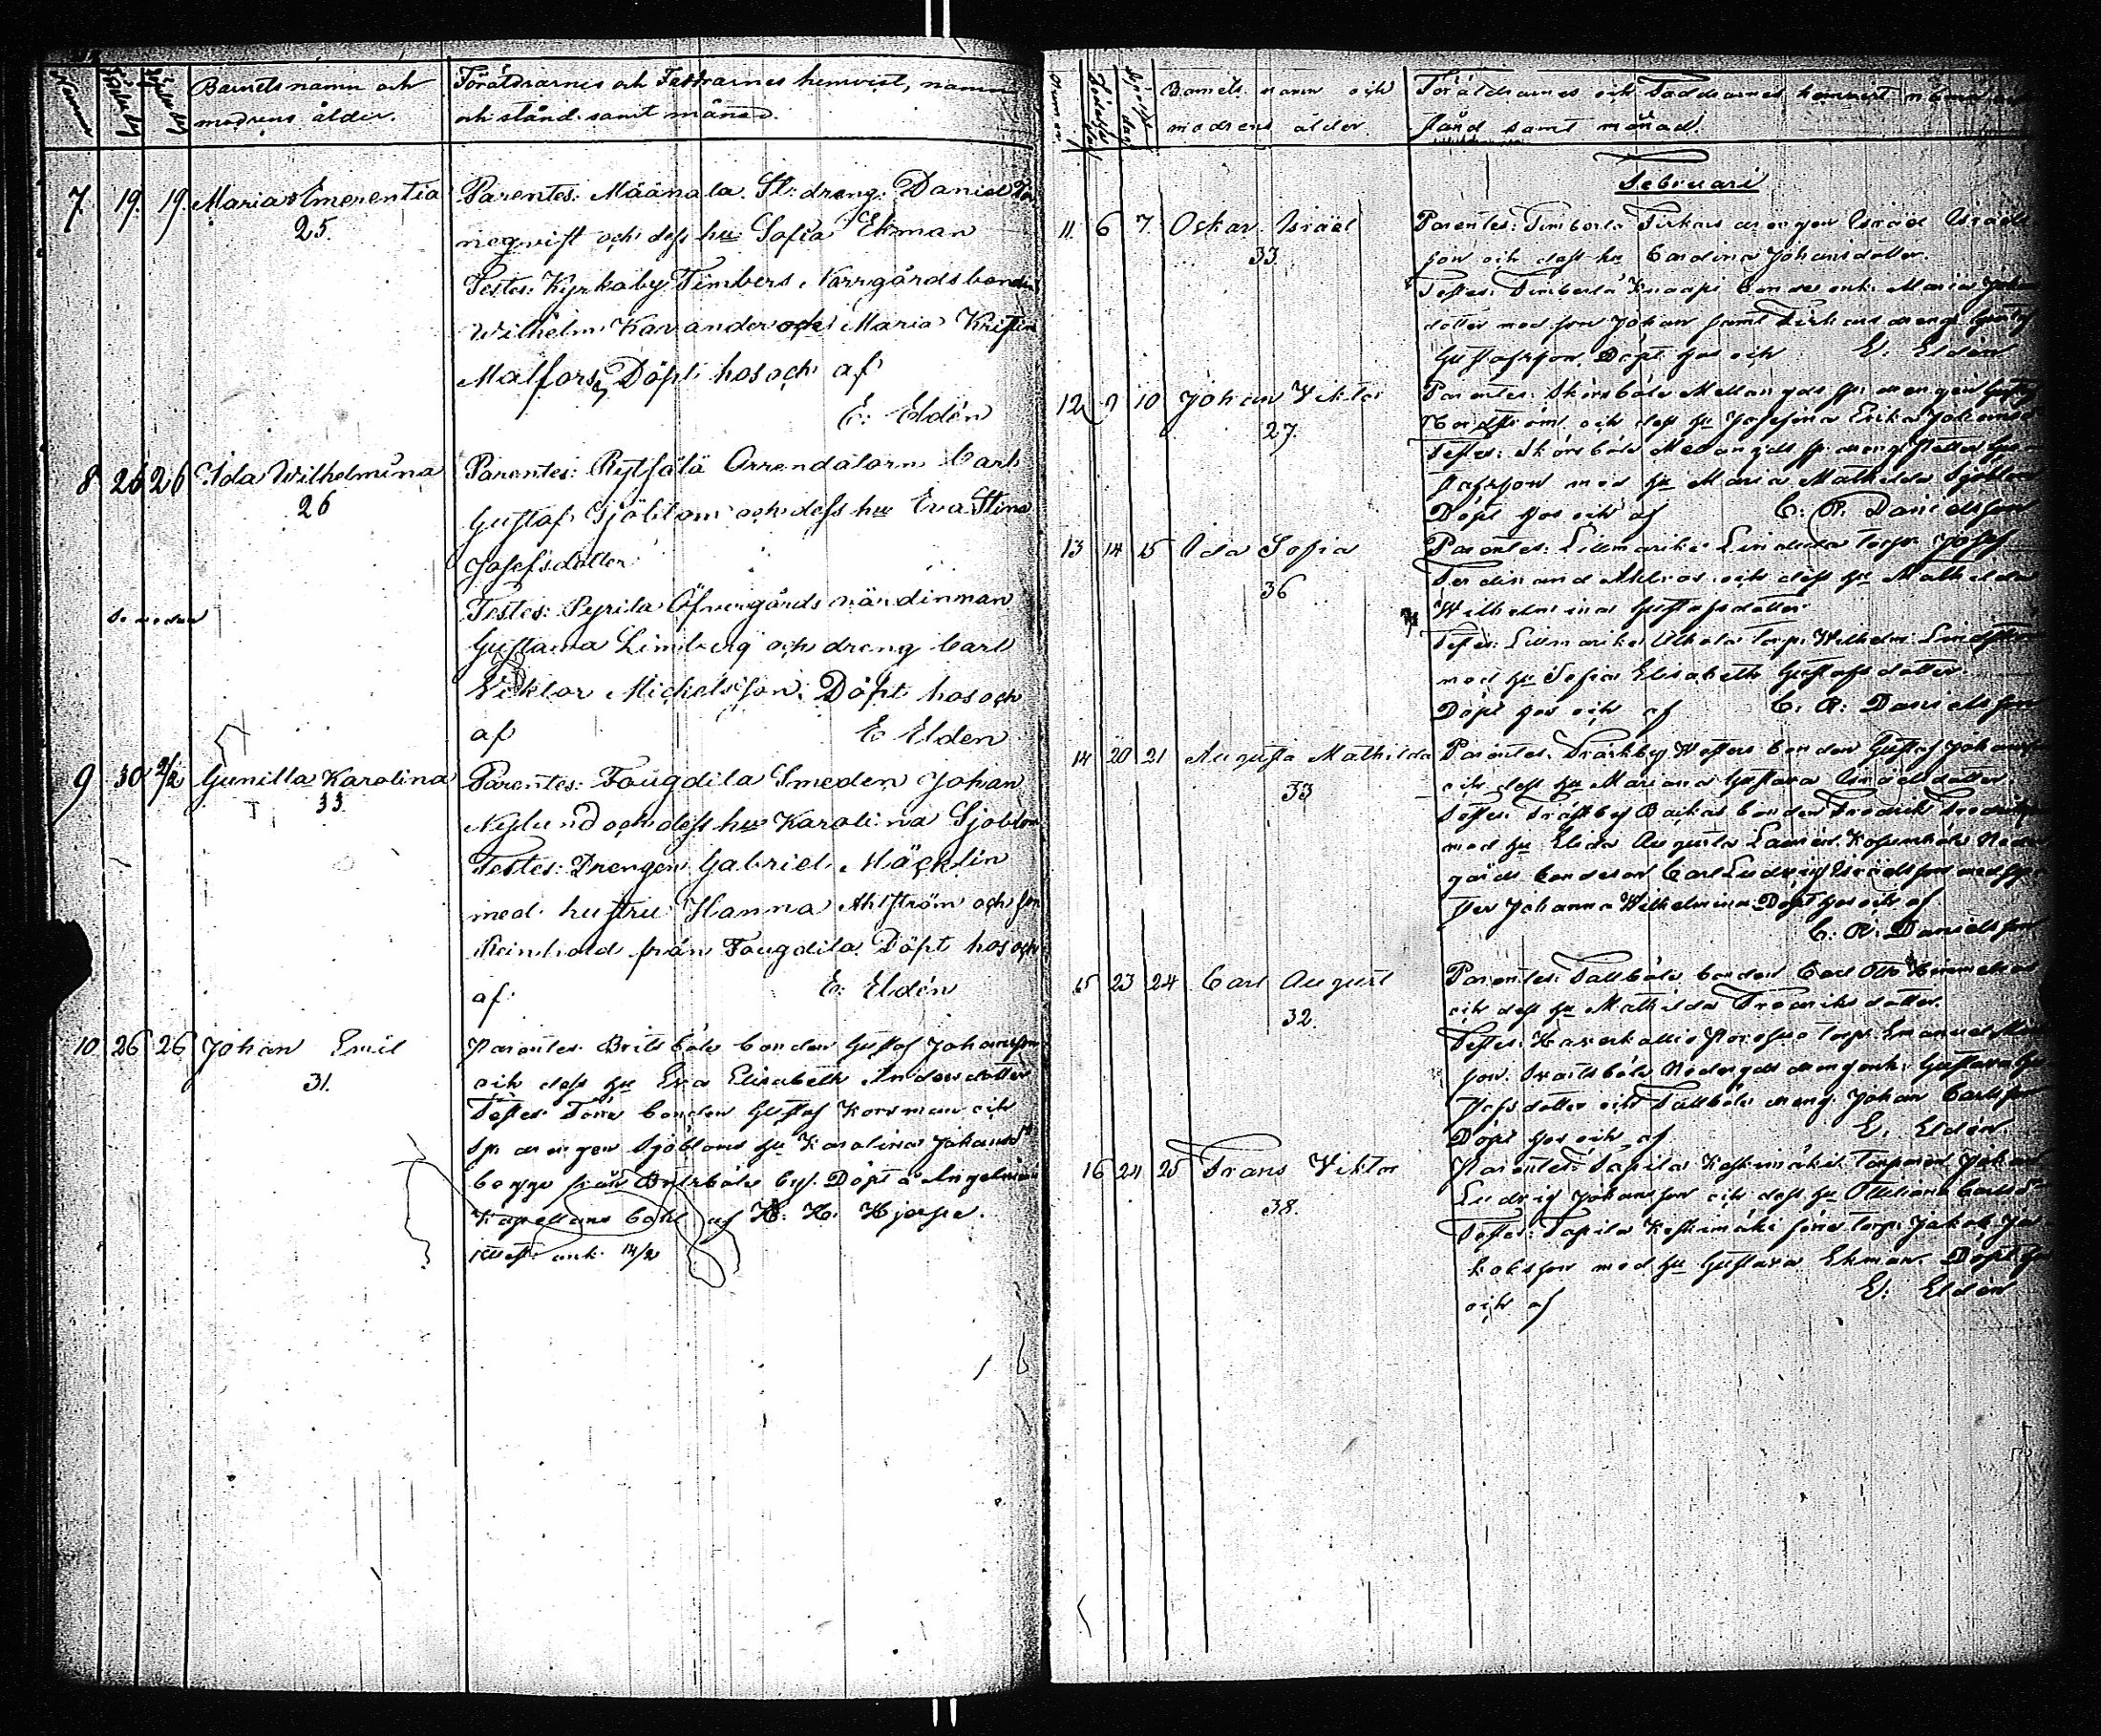 Nummer
Födelsedag
Döpelsedag
Barnets namn och
modrens ålder.
Föräldrarnes och Faddrarnes hemvist, namn
och stånd samt månad.
7. 19. 19. Maria Emerentia
25.
Parentes: Määnala St: dreng. Daniel
negvist och dess hu: Sofia Ekman
Testes: Kyrkoby Timbers, Norrgårds bonden
Wilhelm Karvander och Maria Kristin
Malfors, Döpt hos och af
E: Eldén
8 26 26 Ida Wilhelmina
26
Parentes: Rytsälä Arrendatorn Carl
Gustaf Sjöblom och dess hu Eva Stina
Josefsdotter
Testes: Pyrila Öfvergårds
Gustava Limberg och dreng Carl
Viktor Michelsson. Döpt hos och
af E Elden
9 30 2/2 Gunilla Karolina
33.
Parentes: Fougdila Smeden Johan
Nylund och dess hu Karolina Sjöblom
Testes: Drengen Gabriel Mäcklin
med hustru Hanna Ahlström och son
Reinhold från Fougdila. Döpt hos och
af. E: Eldén
10 26 26 Johan Emil
31.
Parentes: Brittsböle bonden Gustaf Johansson
och dess hu Eva Elisabeth Andersdotter
Testes: bonden Gustaf Korsman och
Sp. drengen Sjöbloms hu Karolina Johansd
begge från by. Döpt å Angelniemi
Kapellans bohl af H: H: Hjerpe.
Attest ank. 14/2
Barnets namn och
modrens ålder.
Föräldrarnes och Faddrarnes hemvist namn
stånd samt månad.
Februari
11. 6 7 Oskar Israel
33.
Parentes: Timberla Tirkars drengen Israel Israels
son och dess hu Carolina Johansdotter.
Testes: Timberla Knaapi bonde enk. Maria Johans
dotter med son Johan samt Tirkars dreng
Gustafsson. Döpt hos och E: Eldén
12 9 10 Johan Viktor
27.
Parentes: Skinsböle Mellangds sp. drengen
Nordström och dess hu Josefina Erika Johans
Testes: Skinsböle Mellangds sp. dreng
tafsson med hu Maria Mathilda Sjöblom
Döpt hos och af C: R. Danielsson
13 14 15 Ida Sofia
36
Parentes: Lillmarike torp. Josef
Ferdinand Ahlros och dess hu Mathilda
Wilhelmina Gustafsdotter
Testes: Lillmarike torp. Wilhelm
med hu Sofia Elisabeth Gustafsdotter.
Döpt hos och af C: R: Danielsson
14 20 21 Augusta Mathilda
33
Parentes. Träskby Westers bonden Gustaf Johansson
och dess hu Mariana Gustava Israelsdotter
Testes: Träskby Backas bonden Fredrik
med hu Elida Augusta
gårds bondeson Carl Ludvig Israelsson med
ster Johanna Wilhelmina. Döpt hos och af
C: R: Danielsson
15 23 24 Carl August
32.
Parentes: Tallböle bonden Carl Otto
och dess hu Mathilda Fredriksdotter.
Testes: torp. Emanuel
son. Nedergds drengenk. Gustava Gu
stafsdotter och Tallböle dreng Johan Carlsson
Döpt hos och af E. Eldén
16 24 25 Frans Viktor
38.
Parentes: Tapila Keskimäki torparen Johan
Ludvig Johansson och dess hu Carlsd
Testes: Tapila Keskimäki torp. Jakob Ja
kobsson med hu Gustava Ekman. Döpt hos
och af E: Eldén